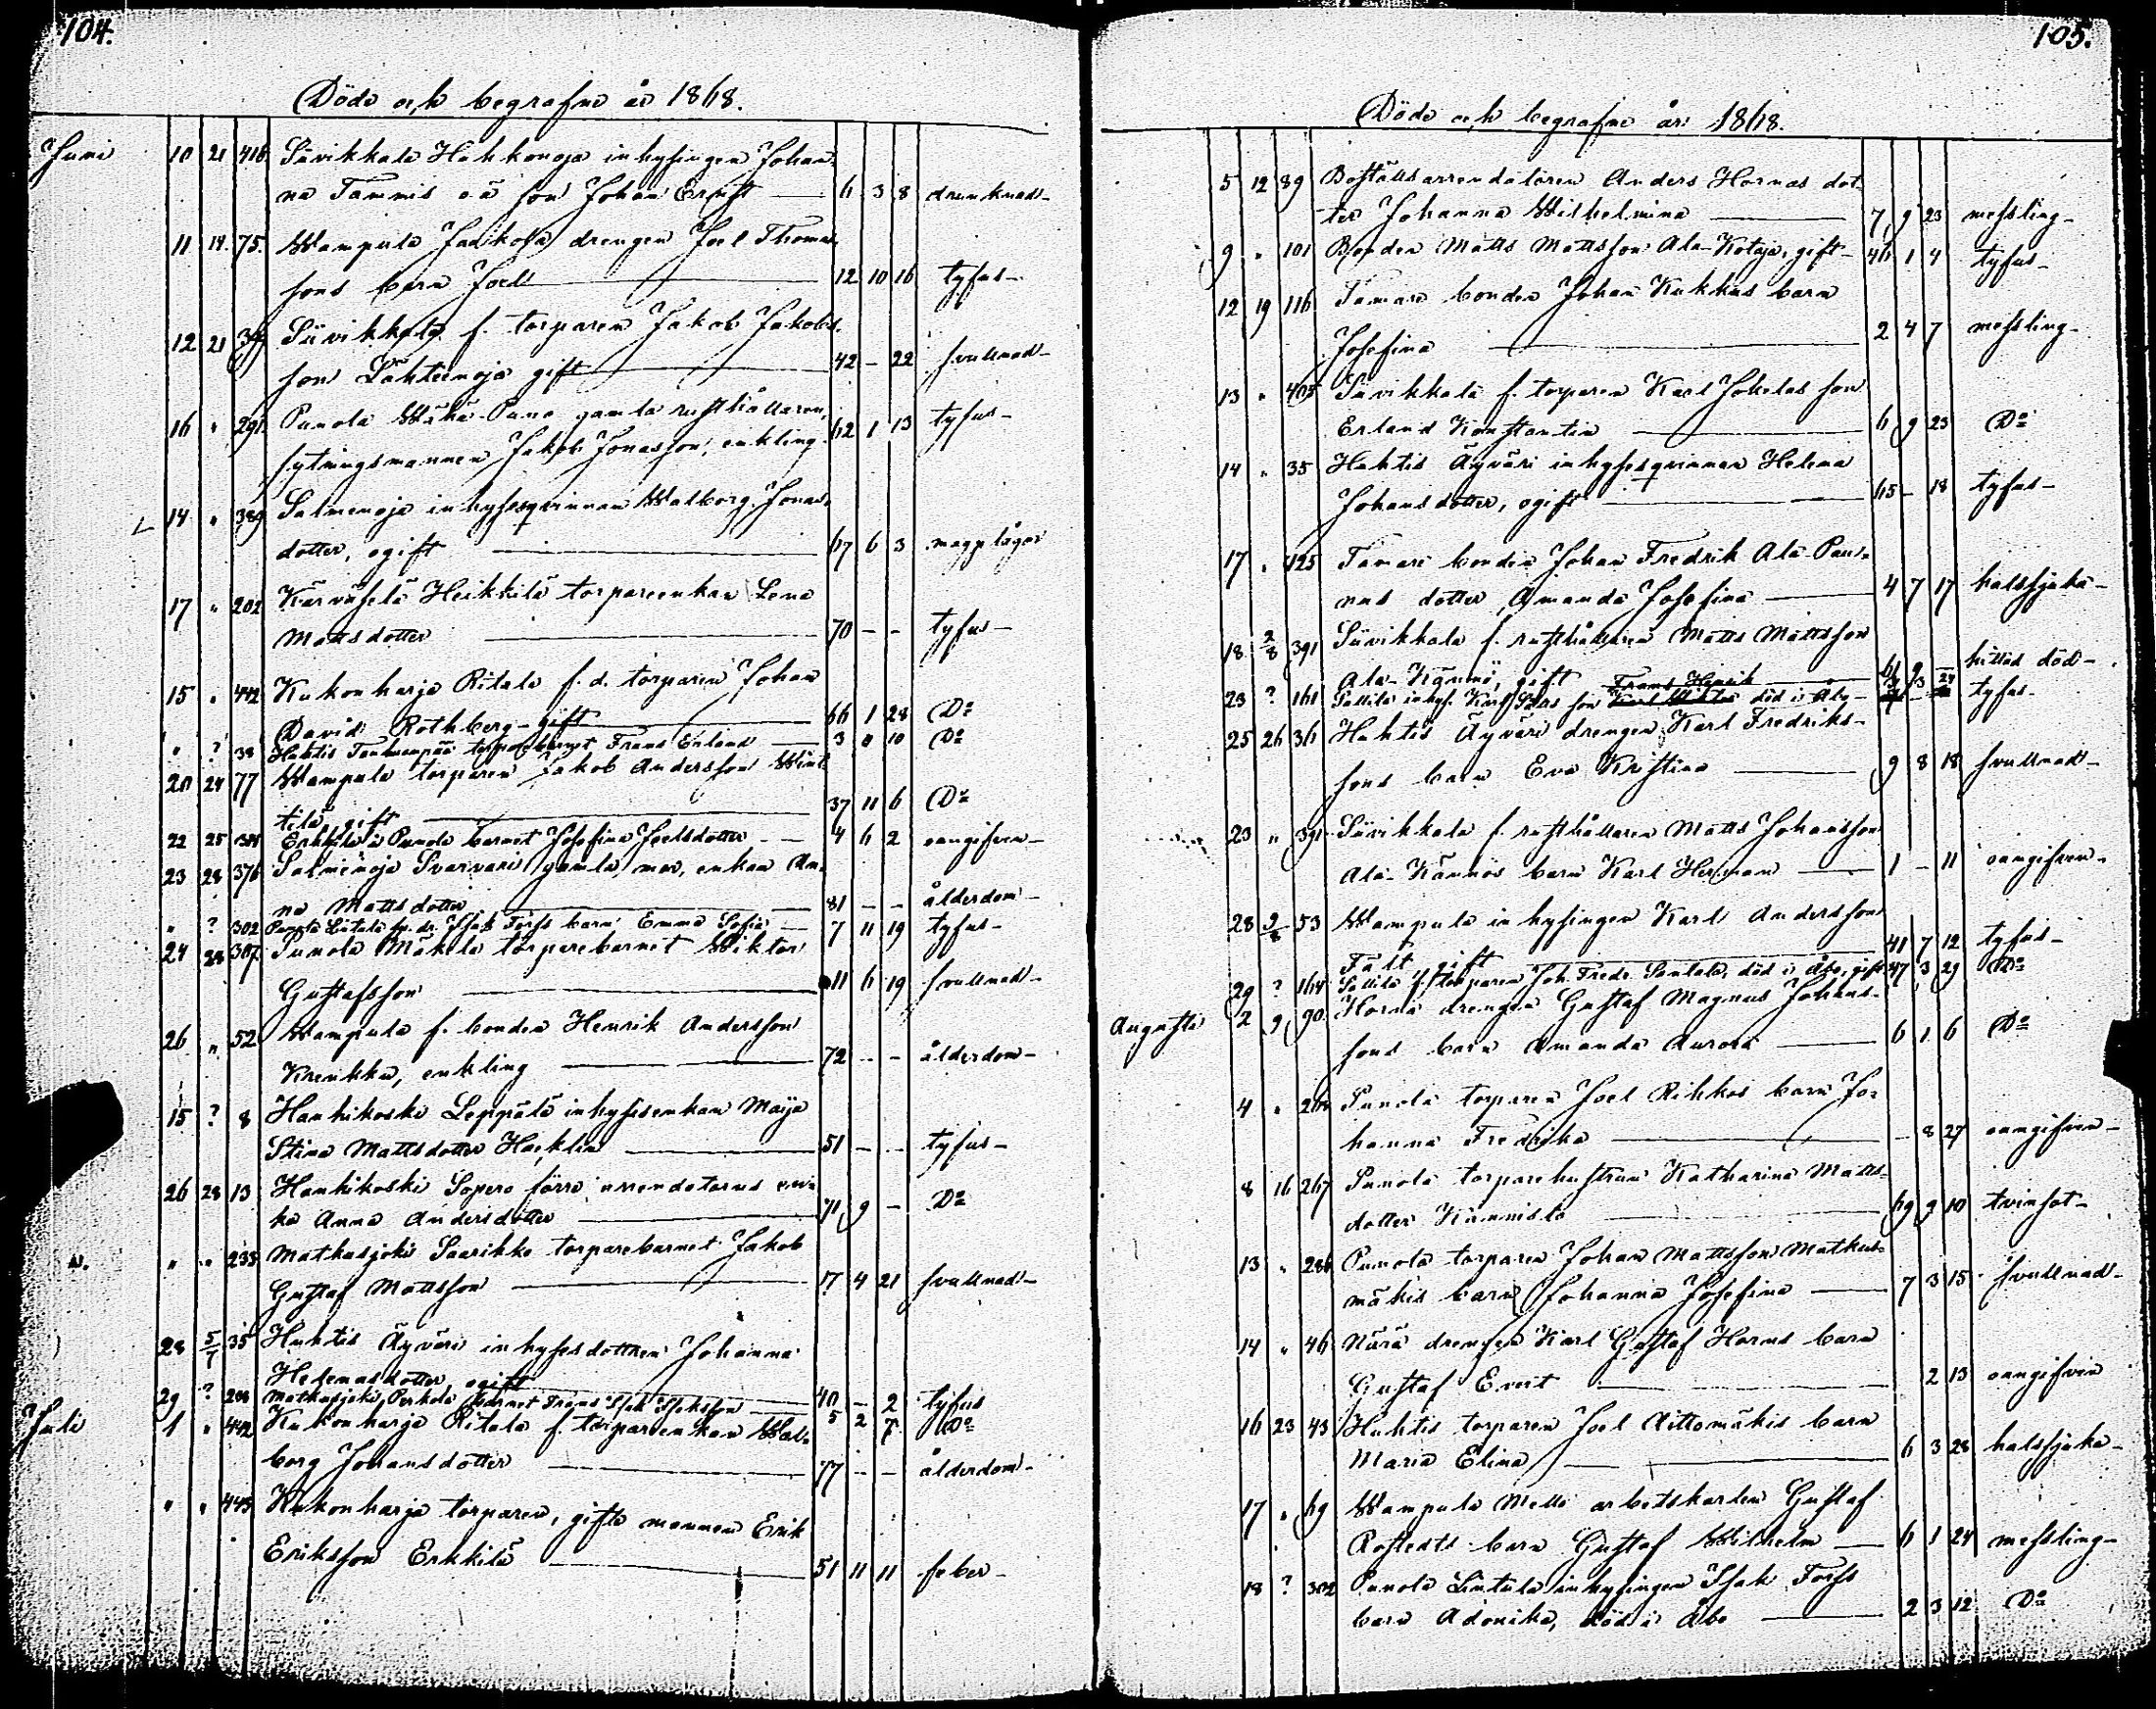 104.
Döde och begrafne år 1868.
Juni 10 21 416. Sävikkala Hahkonoja inhysingen Johan-
na Tammis o ä son Johan Ernst — 6 3 8 drunknad-
11 14. 75. Wampula drengen Joel Thomas-
sons barn Joel — 12 10 16 tyfus-
12 21 Sävikkala f. torparen Jakob Jakobs-
son Lähteenoja gift — 42 - 22 svullnad-
16 " 291 Punola Wähä-Puno gamla rusthållaren,
sytningsmannen Jakob Jonasson, enkling- 62 1 13 tyfus-
14 " 389 Salmenoja inhysesqvinnan Walborg Jonas-
dotter, ogift — 67 6 3 magplågor
17 " 202 Kärväselä Heikkilä torpareenkan Lena
Mattsdotter — 70 - - tyfus-
15 " 442 Kukonharja Ritala f. d. torparen Johan
David Rothberg-gift — 66 1 28 Do
" ? 38 Huhtis torparebarnet Frans Erland — 3 11 10 Do
20 24 77 Wampula torparen Jakob Andersson Wint-
tilä, gift — 37 11 6 Do
22 25 Erkkilä i Punola barnet Josefina Joelsdotter — 4 6 2 oangifven-
23 28 376 Salmenoja Svarvars gamla mor, enkan An-
na Mattsdotter — 81 - - ålderdom-
" ? 302 Punola Lintula Isak Forss barn Emma Sofia — 7 11 19 tyfus-
24 28 307 Punola Mäkilä torparebarnet Wiktor
Gustafsson — 11 6 19 svullnad-
26 " 52 Wampula f. bonden Henrik Andersson
Krenkku, enkling — 72 - - ålderdom-
15 ? 8 Hanhikoski Leppälä inhysesenkan Maija
Stina Mattsdotter Hacklin — 51 - - tyfus-
26 28 13 Hanhikoski Sopero förre arrendatorns en-
ka Anna Andersdotter — 71 9 - Do
" " 233 Matkusjoki Saarikko torparebarnet Jakob
Gustaf Mattsson — 7 4 21 svullnad-
28 5/7 35 Huhtis Äyväri inhysesdottren Johanna
Helenasdotter, ogift — 40 - 2 tyfus
29 ? Matkusjoki Perkola barnet Frans Isak Isaksson — 5 2 7 Do
Juli 1 " 442 Kukonharja Ritala f. torpareenkan Wal-
borg Johansdotter — 77 - - ålderdom-
" " 443 Kukonharja torparen, gifte mannen Erik
Eriksson Erkkilä — 51 11 11 feber-
105.
Döde och begrafne år 1868.
5 12 89 Boställsarrendatoren Anders Hornas dot-
ter Johanna Wilhelmina — 7 9 23 messling-
9 " 101 Bonden Matts Mattsson Ala-Kotaja, gift- 46 1 4 tyfus-
12 19 116 Tamare bonden Johan Kukkus barn
Josefina — 2 4 7 messling-
13 " 405 Sävikkala f. torparen Karl Jokelas son
Erland Konstantin — 6 9 23 Do
14 " 35 Huhtis Äyväri inhysesqvinnan Helena
Johansdotter, ogift — 65 - 18 tyfus-
17 " 425 Tamare bonden Johan Fredrik Ala-Pau-
nus dotter Amanda Josefina — 4 7 17 halssjuka-
18 2/8 391 Sävikkala f. rusthållaren Matts Mattsson
Ala-Kännö, gift — hittad död-
23 ? 161 Sallila inhys. Karl son Frans Henrik död i Åbo- tyfus-
25 26 36 Huhtis Äyväri drengen Karl Fredriks-
sons barn Eva Kristina — 9 8 18 svullnad-
23 " 391 Sävikkala f. rusthållaren Matts Johansson
Ala-Kännös barn Karl Herman — 1 - 11 oangifven-
28 9/8 53 Wampula inhysingen Karl Andersson
Fält, gift — 41 7 12 tyfus-
29 ? 164 Sallila f. torparen Joh. Fredr. Santala, död i Åbo, gift 47 3 29 Do
Augusti 2 9 90. Horna drengen Gustaf Magnus Johans-
sons barn Amanda Aurora — 6 1 6 Do
4 " Punola torparen Joel Rihkos barn Jo-
hanna Fredrika — - 8 27 oangifven-
8 16 267 Punola torparehustrun Katharina Matts-
dotter Kännistö — 69 9 10 tvinsot-
13 " 286 Punola torparen Johan Mattsson Matkus-
mäkis barn Johanna Josefina — 7 3 15 svullnad-
14 " 46 Närä drengen Karl Gustaf Hornus barn
Gustaf Evert — 2 13 oangifven
16 23 43 Huhtis torparen Joel Aittomäkis barn
Maria Elina — 6 3 28 halssjuka-
17 " 69 Wampula Melli arbetskarlen Gustaf
Rostedts barn Gustaf Wilhelm — 6 1 24 messling-
18 ? 302 Punola Lintula inhysingen Isak Forss
barn Adonika, död i Åbo — 2 3 12 Do